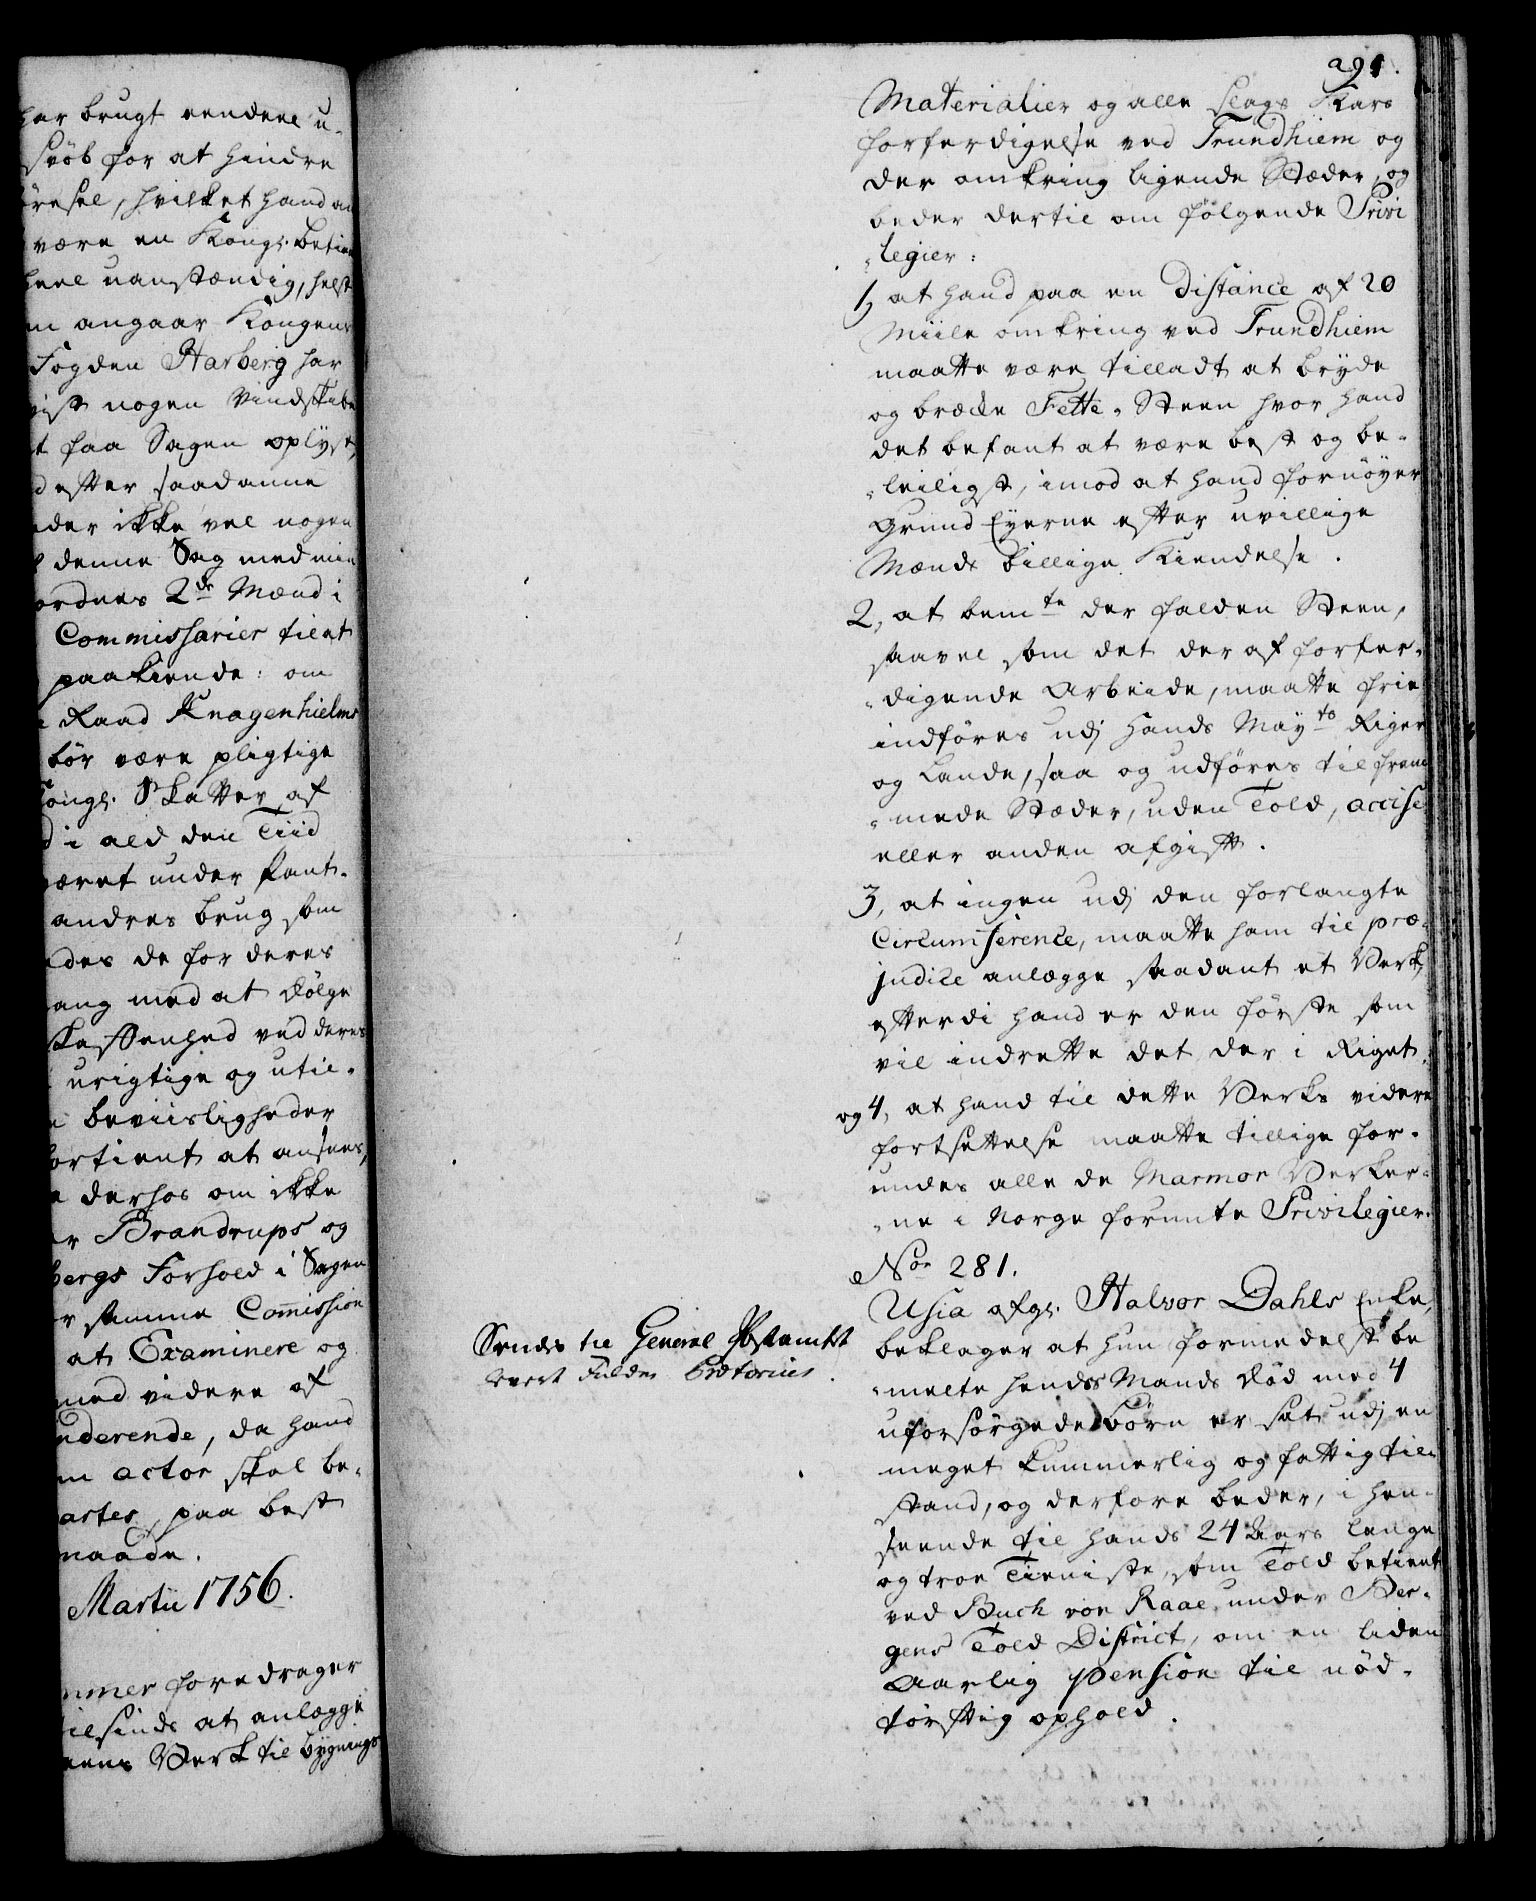 har brugt eendeel u-
svøb for at hindre
ørsel, hvilket hand an
være en Kongl. betien
heel uanstændig, helst
m angaar Kongens
Fogden Harberg har
vist nogen Vindskibe
t faa Sagen oplyst,
d efter saadanne
der ikke vel nogen
denne Sag med min
ordnes 2de Mænd i
Commissarier til at
paakiende: om
Raad Knagenhielms
bør være pligtige
Kongl. Skatter af
d i ald den Tiid
været under Pant-
andres brug som
des de for deres
ang med at dølge
skaffenhed ved deres
urigtige og util-
beviisligheder
fortient at ansees,
derhos om ikke
er Brandrups og
bergs Forhold i Sagen
r samme Commission
at Examinere og
med videre af
nderende, da hand
m actor skal be-
artes, paa best
maade.
Martii 1756.
mmer foredrager
tilsinds at anlægge
eens Verk til bygnings
291.
Materialier og alle slags Kars
forferdigelse ved Trundhiem og
der omkring ligende Stæder, og
beder dertil om følgende Privi
-legier:
1, at hand paa en Distance af 20
Miile omkring ved Trundhiem
maatte være tilladt at bryde
og brække Fette-Steen hvor hand
det befant at være best og be-
-leiligst, imod at hand fornøyer
Grund Eyerne efter uvillige
Mænds billige Kiendelse.
2, at bemte der falden Steen,
saavel som det deraf forfer-
-digende Arbeide, maatte frie
indføres udj Hands Mayts Riger
og Lande, saa og udføres til frem
-mede Stæder, uden Told, accise
eller anden afgift.
3, at ingen udj den forlangte
Circumference, maatte ham til præ-
judice anlægge saadant et Verk,
efterdi hand er den første som
vil indrette det der i Riget.
og 4, at hand til dette Verks videre
fortsettelse maatte tillige for-
undes alle de Marmor Verker-
-ne i Norge forunte Privilegier.
No 281.
Usia afgl. Halvor Dahls Enke,
beklager at hun formedelst be
-melte hendes Mands Død med 4
uforsørgede børn er sat udj en
meget kummerlig og fattig til-
stand, og derfore beder, i hen-
seende til hands 24 Aars lange
og troe Tieniste, som Told betient
ved Buch von Raae under Ber-
gens Told District, om en liden
Aarlig Pension til nød-
tørftig ophold.
Sendes til General Postamtet
hvert Fulder Prætorius.